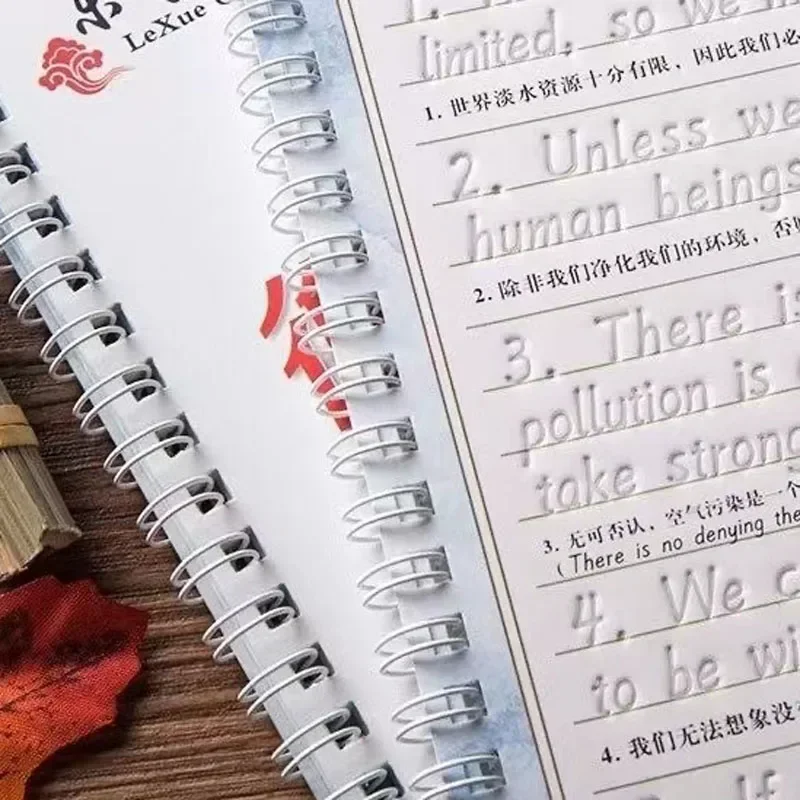 LeXue
1.
limited, so we
1. 世界淡水资源十分有限，因此我们必
2. Unless we
human beings
2. 除非我们净化我们的环境，否则
3. There is
pollution is
take strong
3. 无可否认，空气污染是一个
(There is no denying the
4. We c
to be wi
4. 我们无法想象没